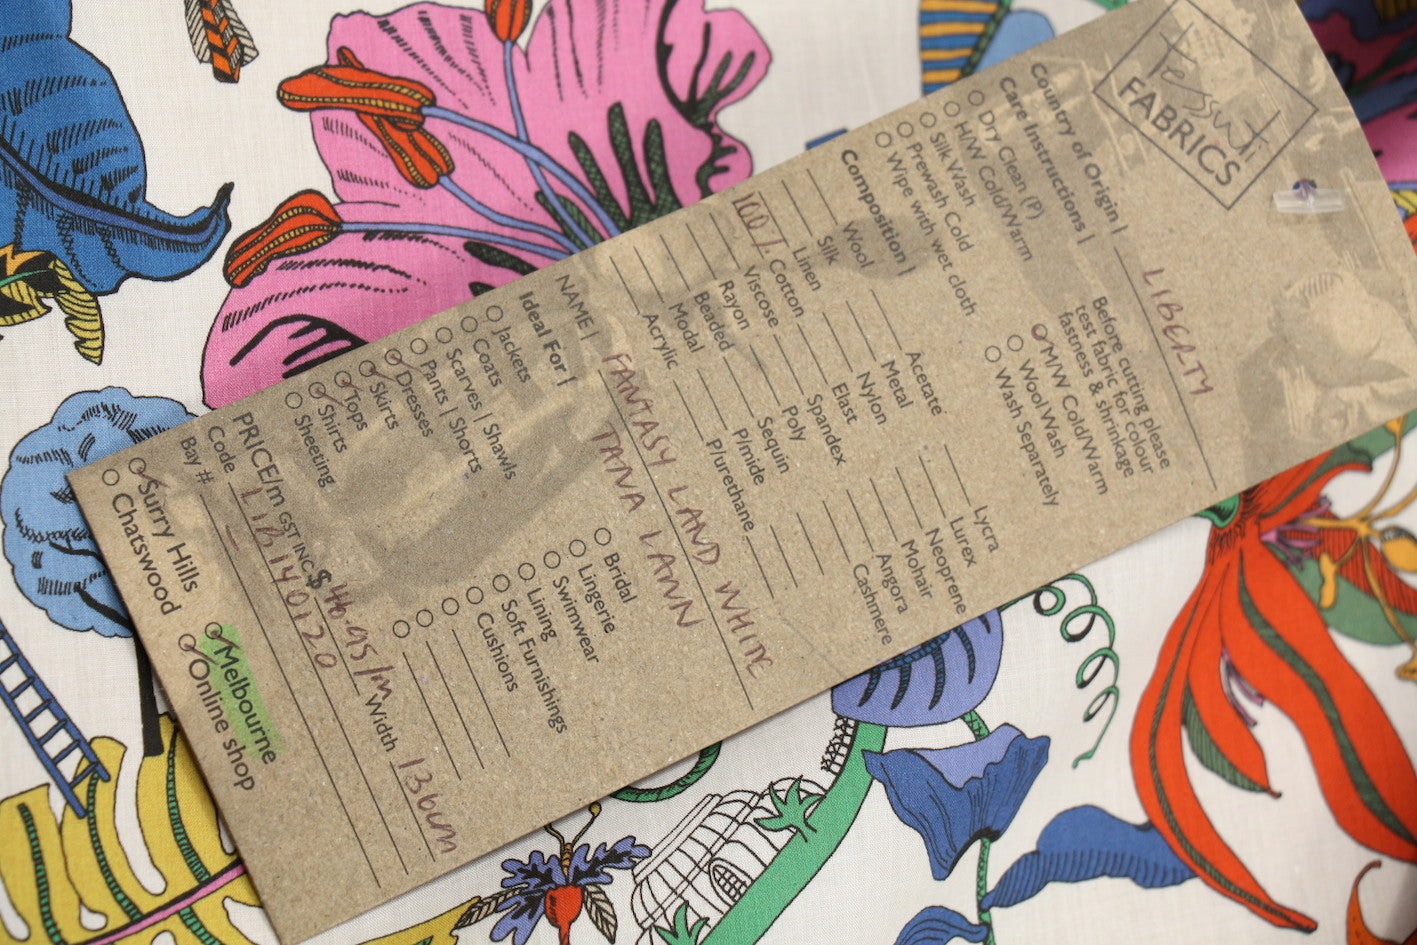 Tessuti
FABRICS
Country of Origin | LIBERTY
Care Instructions |
Before cutting please
test fabric for colour
fastness & shrinkage
Dry Clean (P)
H/W Cold/Warm
Silk Wash
Prewash Cold
Wipe with wet cloth
M/W Cold/Warm
Wool Wash
Wash Separately
Composition |
Wool
Silk
Linen
100% Cotton
Viscose
Rayon
Beaded
Modal
Acrylic
Acetate
Metal
Nylon
Elast
Spandex
Poly
Sequin
P/mide
P/urethane
Lycra
Lurex
Neoprene
Mohair
Angora
Cashmere
NAME | FANTASY LAND WHITE
TANA LAWN
Ideal For |
Jackets
Coats
Scarves | Shawls
Pants | Shorts
Dresses
Skirts
Tops
Shirts
Sheeting
Bridal
Lingerie
Swimwear
Lining
Soft Furnishings
Cushions
PRICE/m GST INC $ 46.95/m Width 136cm
Code LIB140120
Bay # –
Surry Hills
Chatswood
Melbourne
Online shop